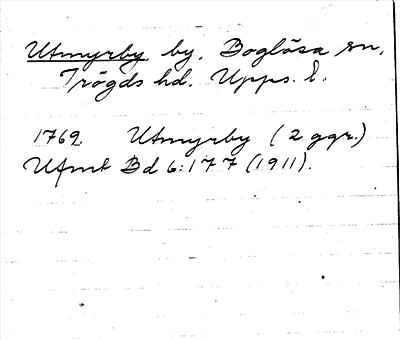 Utmyrby by, Boglösa sn,
Trögds hd. Upps. l.
1769. Utmyrby (2 ggr.)
Ufmt Bd 6:177 (1911).